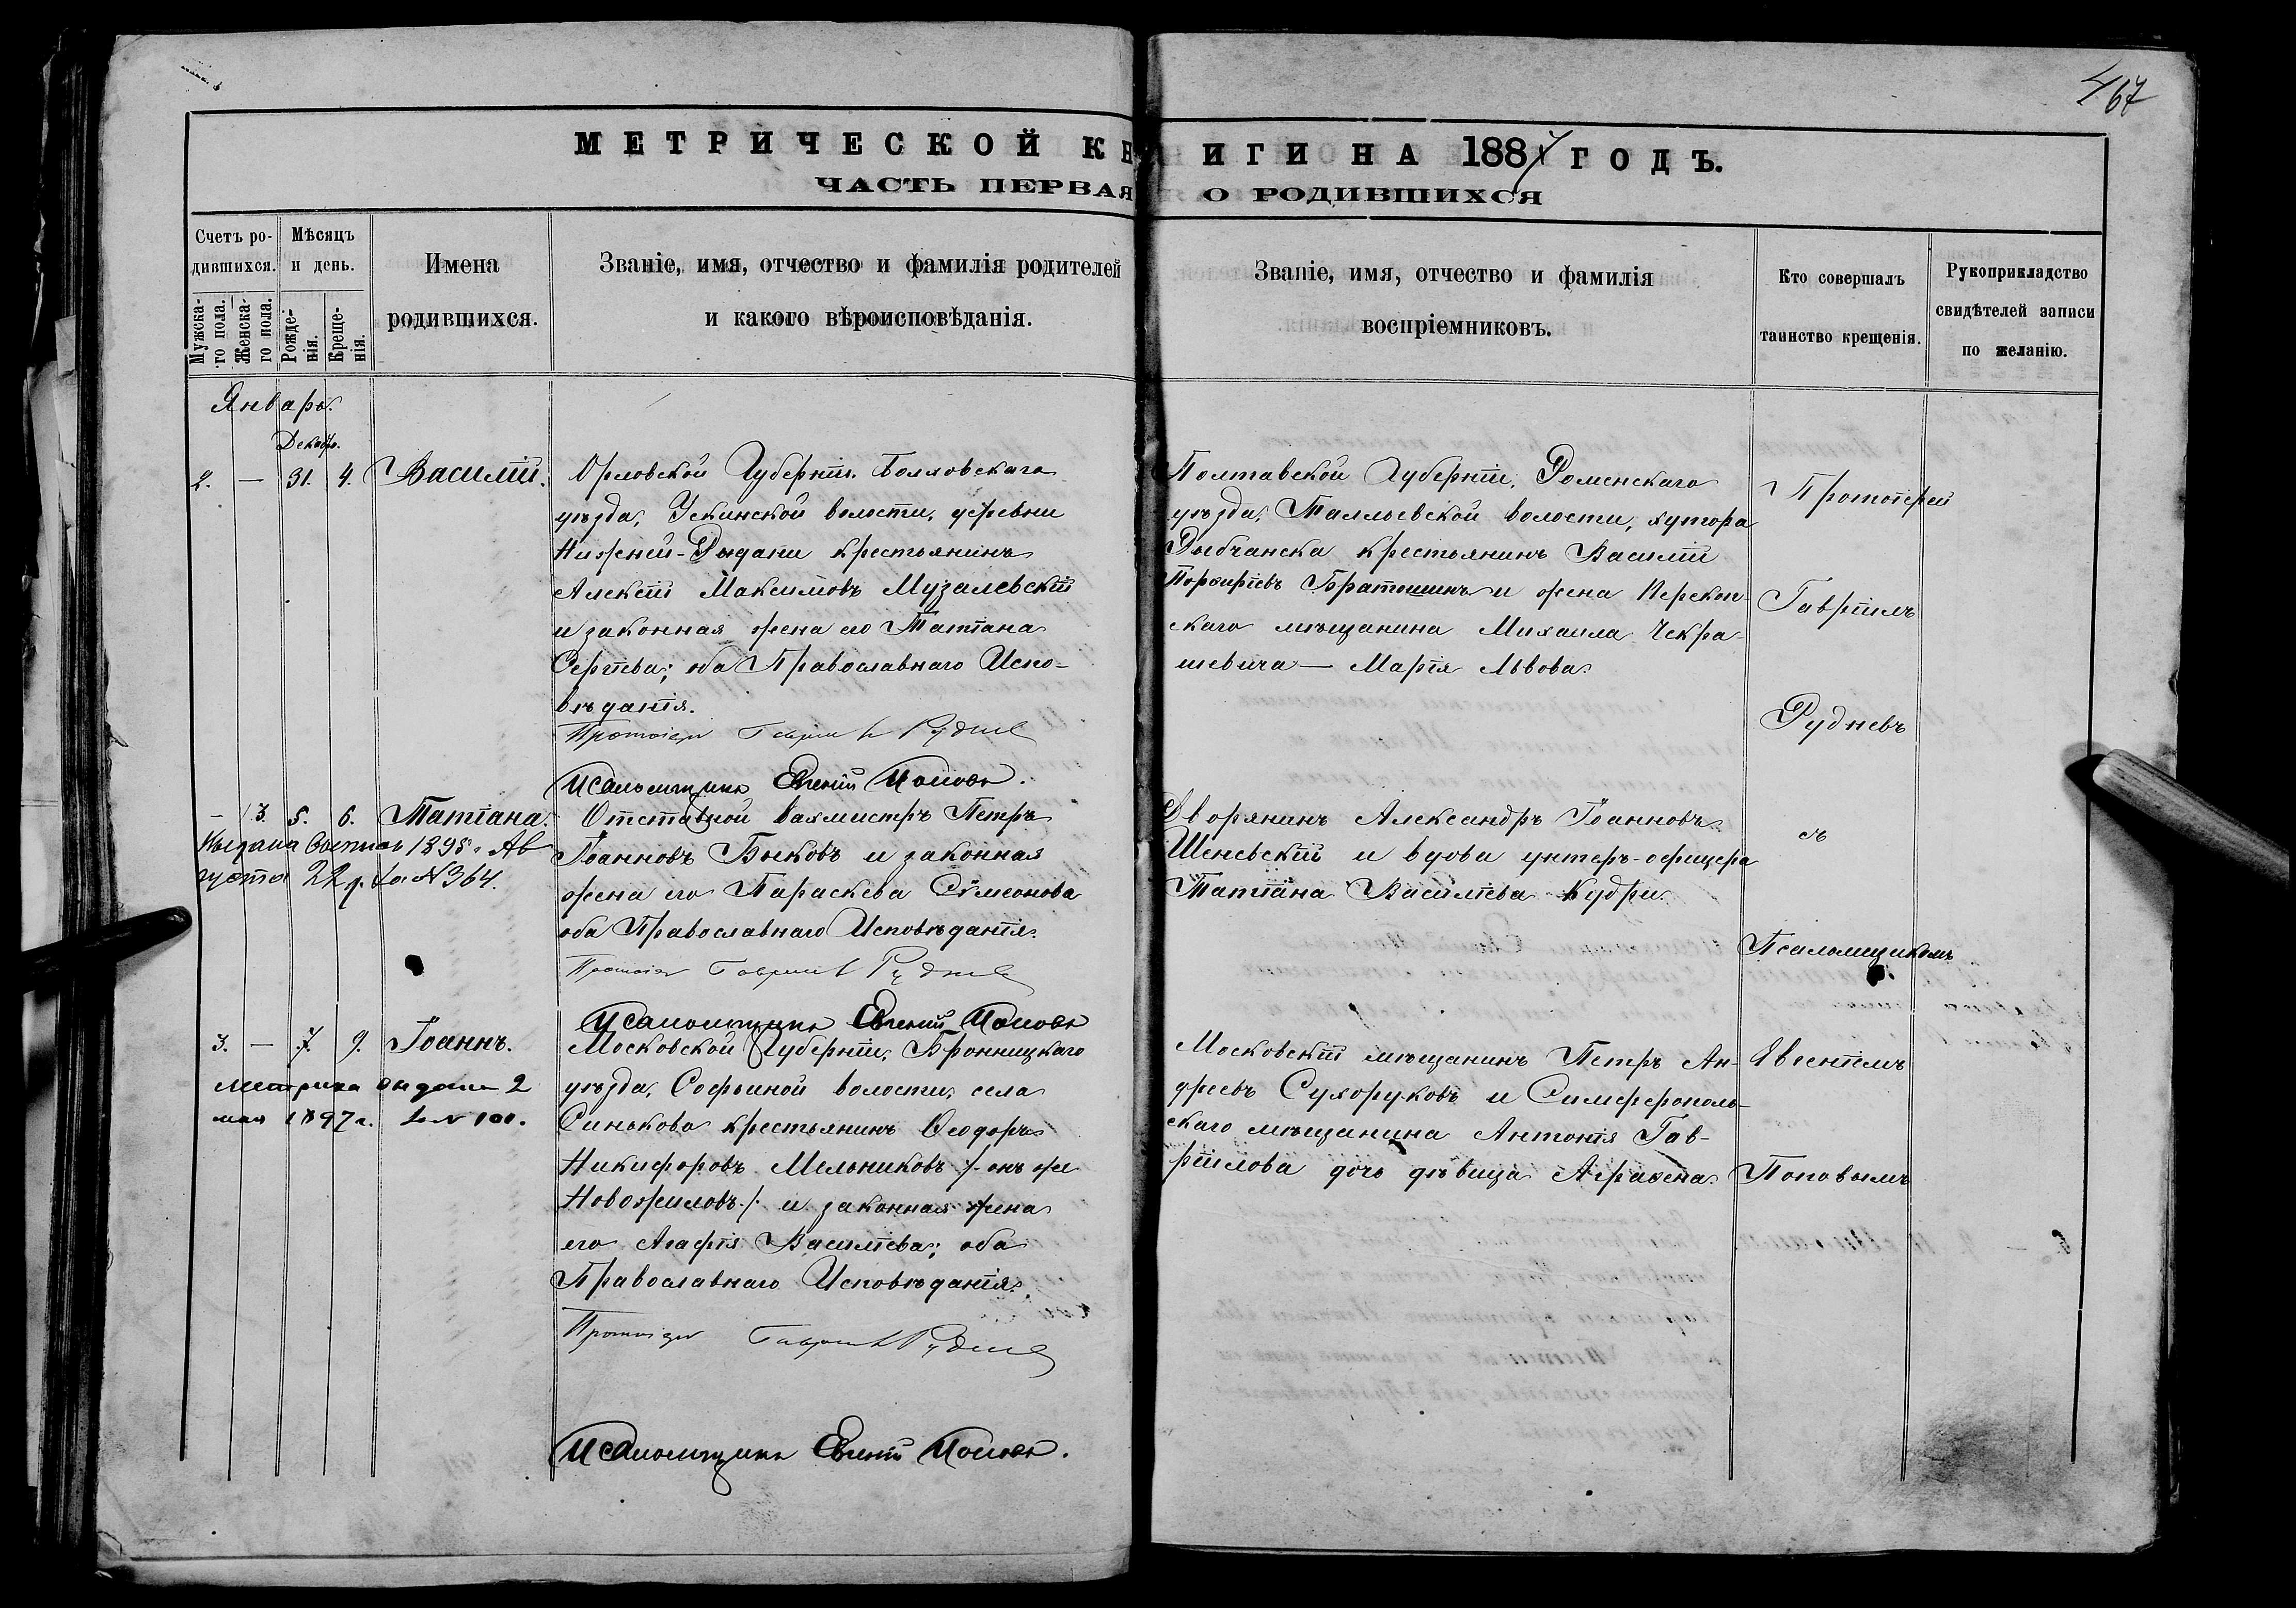 467
МЕТРИЧЕСКОЙ КНИГИ НА 1887 ГОДЪ.
ЧАСТЬ ПЕРВАЯ О РОДИВШИХСЯ
Счетъ ро-
дившихся.
Мужска-
го пола.
Женска-
го пола.
Мѣсяцъ
и день.
Рожде-
нія.
Креще-
нія.
Имена
родившихся.
Званіе, имя, отчество и фамилія родителей
и какого вѣроисповѣданія.
Званіе, имя, отчество и фамилія
воспріемниковъ.
Кто совершалъ
таинство крещенія.
Рукоприкладство
свидѣтелей записи
по желанію.
Январь.
Декабр.
2. — 31. 4. Василій.
Орловской Губерніи. Болховскаго
уѣзда, Ускинской волости, деревни
Нижней-Рыдани крестьянинъ
Алексій Максимовъ Музалевскій
и законная жена его Татіана
Сергіева; оба Православнаго Испо-
вѣданія.
Протоіерей Гавріилъ Рудневъ
Псаломщикъ Евгеній Поповъ.
Полтавской Губерніи, Роменскаго
уѣзда, Талльевской волости, хутора
Рыбчанска крестьянинъ Василій
Порфиріевъ Братошинъ и жена Перекоп-
скаго мѣщанина Михаила Чекра-
шевича — Марія Львова.
Протоіерей
Гавріилъ
Рудневъ
— 3. 5. 6. Татіана.
Выдана выпись 1895 г. Ав
густа 22 д. за №364.
Отставной вахмистръ Петръ
Іоанновъ Быковъ и законная
жена его Параскева Сѵмеонова
оба Православнаго Исповѣданія.
Протоіерей Гавріилъ Рудневъ
Псаломщикъ Евгеній Поповъ
Дворянинъ Александръ Іоанновъ
Шеневскій и вдова унтеръ-офицера
Татіана Василіева Кудри.
съ
Псаломщикомъ
3. — 7. 9. Іоаннъ.
Метрика выдана 2
мая 1897 г. за № 100.
Московской Губерніи, Бронницкаго
уѣзда, Софьиной волости, села
Синькова крестьянинъ Ѳеодоръ
Никифоровъ Мельниковъ /. онъ же
Новожиловъ ./ и законная жена
его Агафія Василіева; оба
Православнаго Исповѣданія.
Протоіерей Гавріилъ Рудневъ
Псаломщикъ Евгеній Поповъ.
Московскій мѣщанинъ Петръ Ан-
дреевъ Сухоруковъ и Симферополь-
скаго мѣщанина Антонія Гав-
ріилова дочь дѣвица Агрипена.
Евгеніемъ
Поповымъ